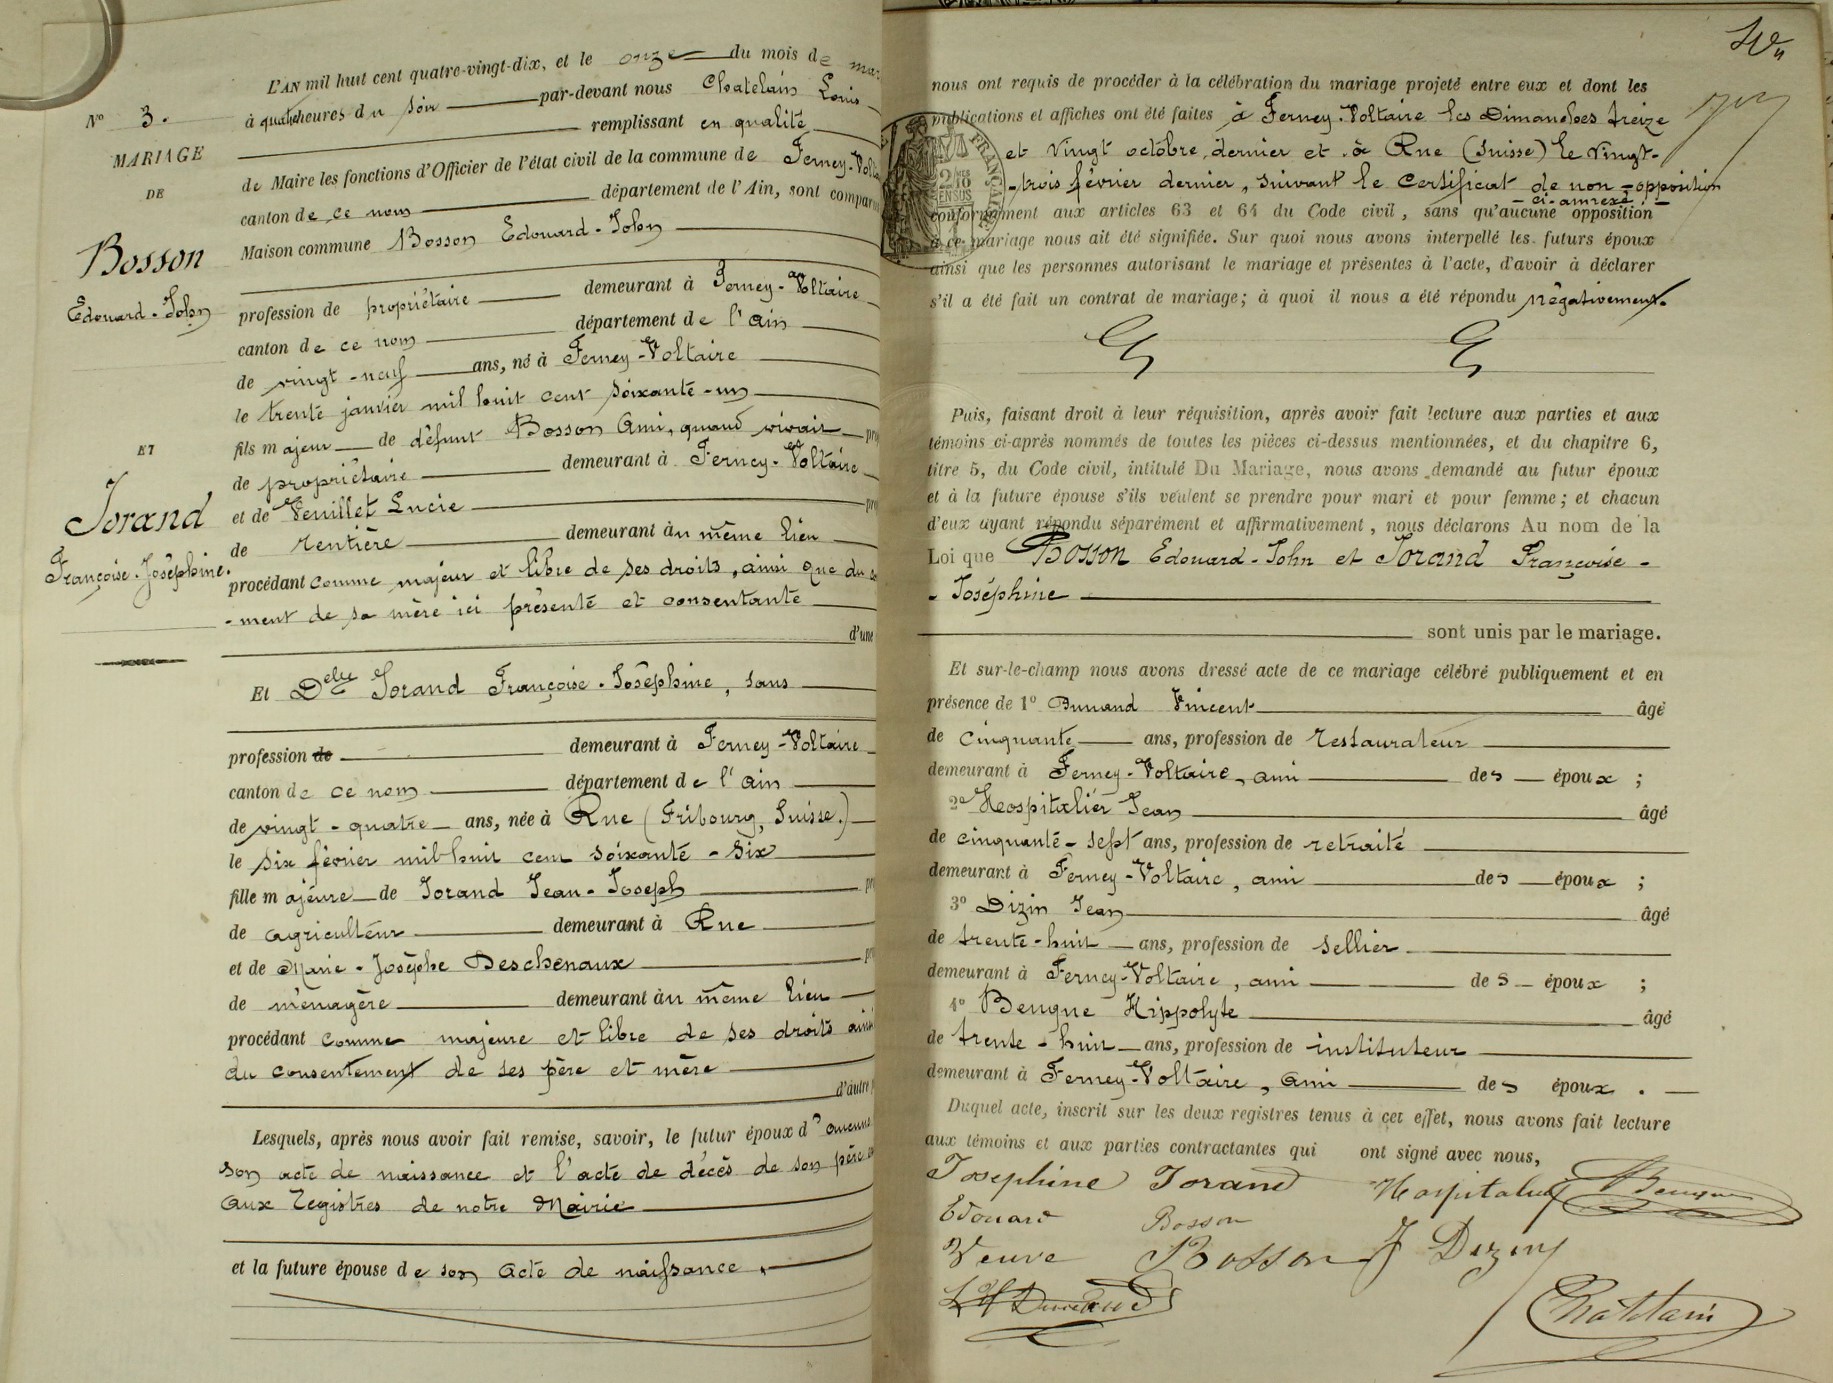 L'AN mil huit cent quatre-vingt-dix, et le onze du mois de mar
à quatre heures du soir par-devant nous Chatelain Louis
remplissant en qualité
de Maire les fonctions d'Officier de l'état civil de la commune de Ferney-Volt
canton de ce nom département de l'Ain, sont comparu
Maison commune Bosson Edouard-John
profession de propriétaire demeurant à Ferney-Voltaire
canton de ce nom département de l'Ain
de vingt-neuf ans, né à Ferney-Voltaire
le trente janvier mil huit cent soixante-un
fils majeur de défunt Bosson Ami, quand vivait pro
de propriétaire demeurant à Ferney-Voltaire
et de Veuillet Lucie pro
de rentière demeurant au même lieu
procédant comme majeur et libre de ses droits, ainsi que du
-ment de sa mère ici présente et consentante
d'une
Et Delle Jorand Françoise-Joséphine, sans
profession de demeurant à Ferney-Voltaire
canton de ce nom département de l'Ain
de vingt-quatre ans, née à Rue (Fribourg, Suisse.)
le six février mil huit cent soixante-six
fille majeure de Jorand Jean-Joseph pr
de agriculteur demeurant à Rue
et de Marie-Josèphe Deschenaux pr
de ménagère demeurant au même lieu
procédant comme majeure et libre de ses droits ainsi
du consentement de ses père et mère
d'autre
Lesquels, après nous avoir fait remise, savoir, le futur époux d'aucune
son acte de naissance et l'acte de décès de son père
aux registres de notre Mairie
et la future épouse de son acte de naissance.
N° 3.
MARIAGE
DE
Bosson
Edouard-John
ET
Jorand
Françoise-Joséphine.
nous ont requis de procéder à la célébration du mariage projeté entre eux et dont les
publications et affiches ont été faites à Ferney-Voltaire les Dimanches treize
et vingt octobre dernier et à Rue (Suisse) le vingt-
-trois février dernier, suivant le certificat de non-opposition
ci-annexé
conformément aux articles 63 et 64 du Code civil, sans qu'aucune opposition
à ce mariage nous ait été signifiée. Sur quoi nous avons interpellé les futurs époux
ainsi que les personnes autorisant le mariage et présentes à l'acte, d'avoir à déclarer
s'il a été fait un contrat de mariage; à quoi il nous a été répondu négativement.
Puis, faisant droit à leur réquisition, après avoir fait lecture aux parties et aux
témoins ci-après nommés de toutes les pièces ci-dessus mentionnées, et du chapitre 6,
titre 5, du Code civil, intitulé Du Mariage, nous avons demandé au futur époux
et à la future épouse s'ils veulent se prendre pour mari et pour femme; et chacun
d'eux ayant répondu séparément et affirmativement, nous déclarons Au nom de la
Loi que Bosson Edouard-John et Jorand Françoise-
-Joséphine
sont unis par le mariage.
Et sur-le-champ nous avons dressé acte de ce mariage célébré publiquement et en
présence de 1° Vincent âgé
de cinquante ans, profession de restaurateur
demeurant à Ferney-Voltaire, ami des époux ;
2° Hospitalier Jean âgé
de cinquante-sept ans, profession de retraité
demeurant à Ferney-Voltaire, ami des époux ;
3° Dizin Jean âgé
de trente-huit ans, profession de sellier
demeurant à Ferney-Voltaire, ami des époux ;
4° Bengue Hippolyte âgé
de trente-huit ans, profession de instituteur
demeurant à Ferney-Voltaire, ami des époux.
Duquel acte, inscrit sur les deux registres tenus à cet effet, nous avons fait lecture
aux témoins et aux parties contractantes qui ont signé avec nous,
Josephine Jorand Hospitalier Bengue
Edouard Bosson
Veuve Bosson J Dizin
Chatelain